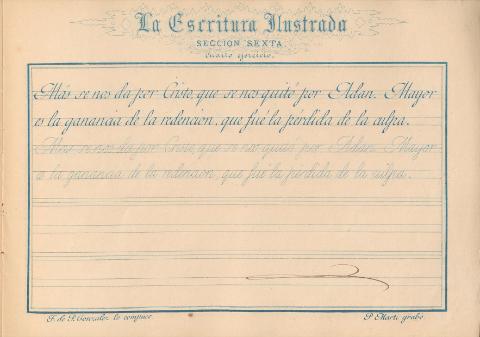 La Escritura Ilustrada
SECCION SEXTA
Cuarto ejercicio.
Más se nos da por Cristo, que se nos quitó por Adan. Mayor
es la ganancia de la redencion, que fué la pérdida de la culpa.
Mas se nos da por Cristo, que se nos quitó por Adan. Mayor
es la ganancia de la redencion, que fué la pérdida de la culpa.
F. de P. Gonzalez lo compuso.
P. Marti grabó.